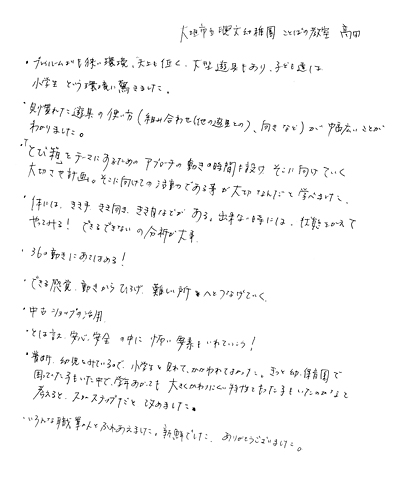 大垣市立 幼稚園 ことばの教室 高田
・プレイルームがとても狭い環境、天井も低く、大型遊具もあり、子ども達は
小学生という環境に驚きました。
・見慣れた遊具の使い方(組み合わせ(他の遊具との)、向きなど)が幅広いことが
わかりました。
・「とび箱」をテーマにするためのアプローチの動きの時間を設け そこに向けていく
大切さや計画。そこに向けての活動である事が大切なんだと学べました。
・体には、きき手 きき向き きき目などがある。出来ない時には、仕方をかえて
やってみる! できるできないの分析が大事
・36の動きにあてはめる!
・できる感覚、動きからひろげ、難しい所へとつなげていく。
・中古ショップの活用
・とは言え、安心、安全 の中に 怖い要素もいれていこう!
・普段、幼児とみているので、小学生と見れて、かかわれてよかった。きっと幼・保育園で
困っていた子もいた中で、学年あがっても 大きくかわりにくい特性をもった子もいたのかなと
考えると、スモールステップだと 改めました。
・いろんな職業の人とふれあえました。新鮮でした。ありがとうございました。